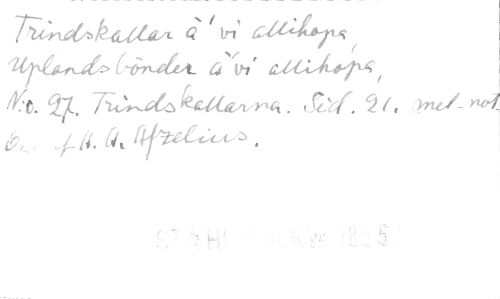 Trindskallar ä' vi allihopa,
Uplandsbönder ä' vi allihopa,
No. 27. Trindskallarna. Sid. 21. mel. not.
af A. A. Afzelius.